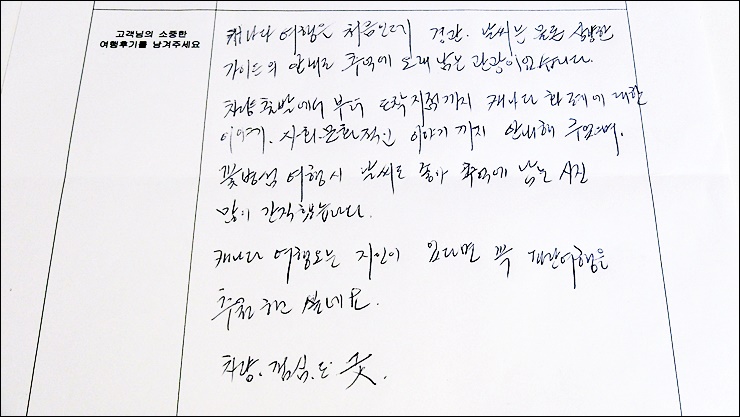 고객님의 소중한
여행후기를 남겨주세요
캐나다 여행은 처음인데 경관. 날씨는 물론
가이드의 안내로 추억에 오래 남는 관광이었습니다.
차량 출발에서 부터 도착지점까지 캐나다 화폐에 대한
이야기. 사회.문화적인 이야기 까지 안내해 주었으며.
여행시 날씨도 좋아 추억에 남는 사진
많이 간직했습니다.
캐나다 여행오는 지인이 있다면 꼭
추천 하고 싶네요.
차량.점심.도 굿.